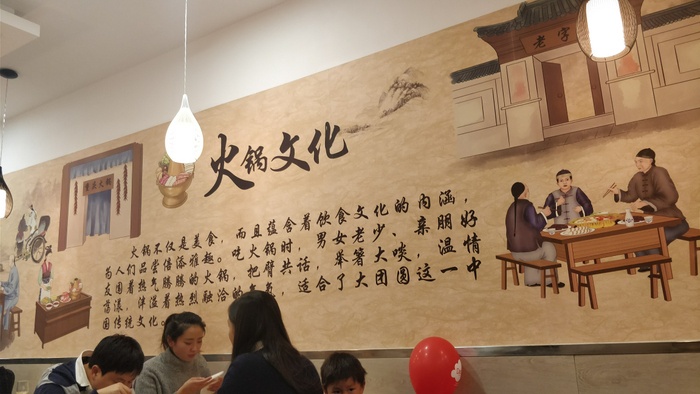 老字
火锅文化
火锅不仅是美食，而且蕴含着饮食文化的内涵，
为人们品尝倍添雅趣。吃火锅时，男女老少、亲朋好
友围着热气腾腾的火锅，把臂共话，举箸大啖，温情
荡漾，洋溢着热烈融洽的气氛，适合了大团圆这一中
国传统文化。